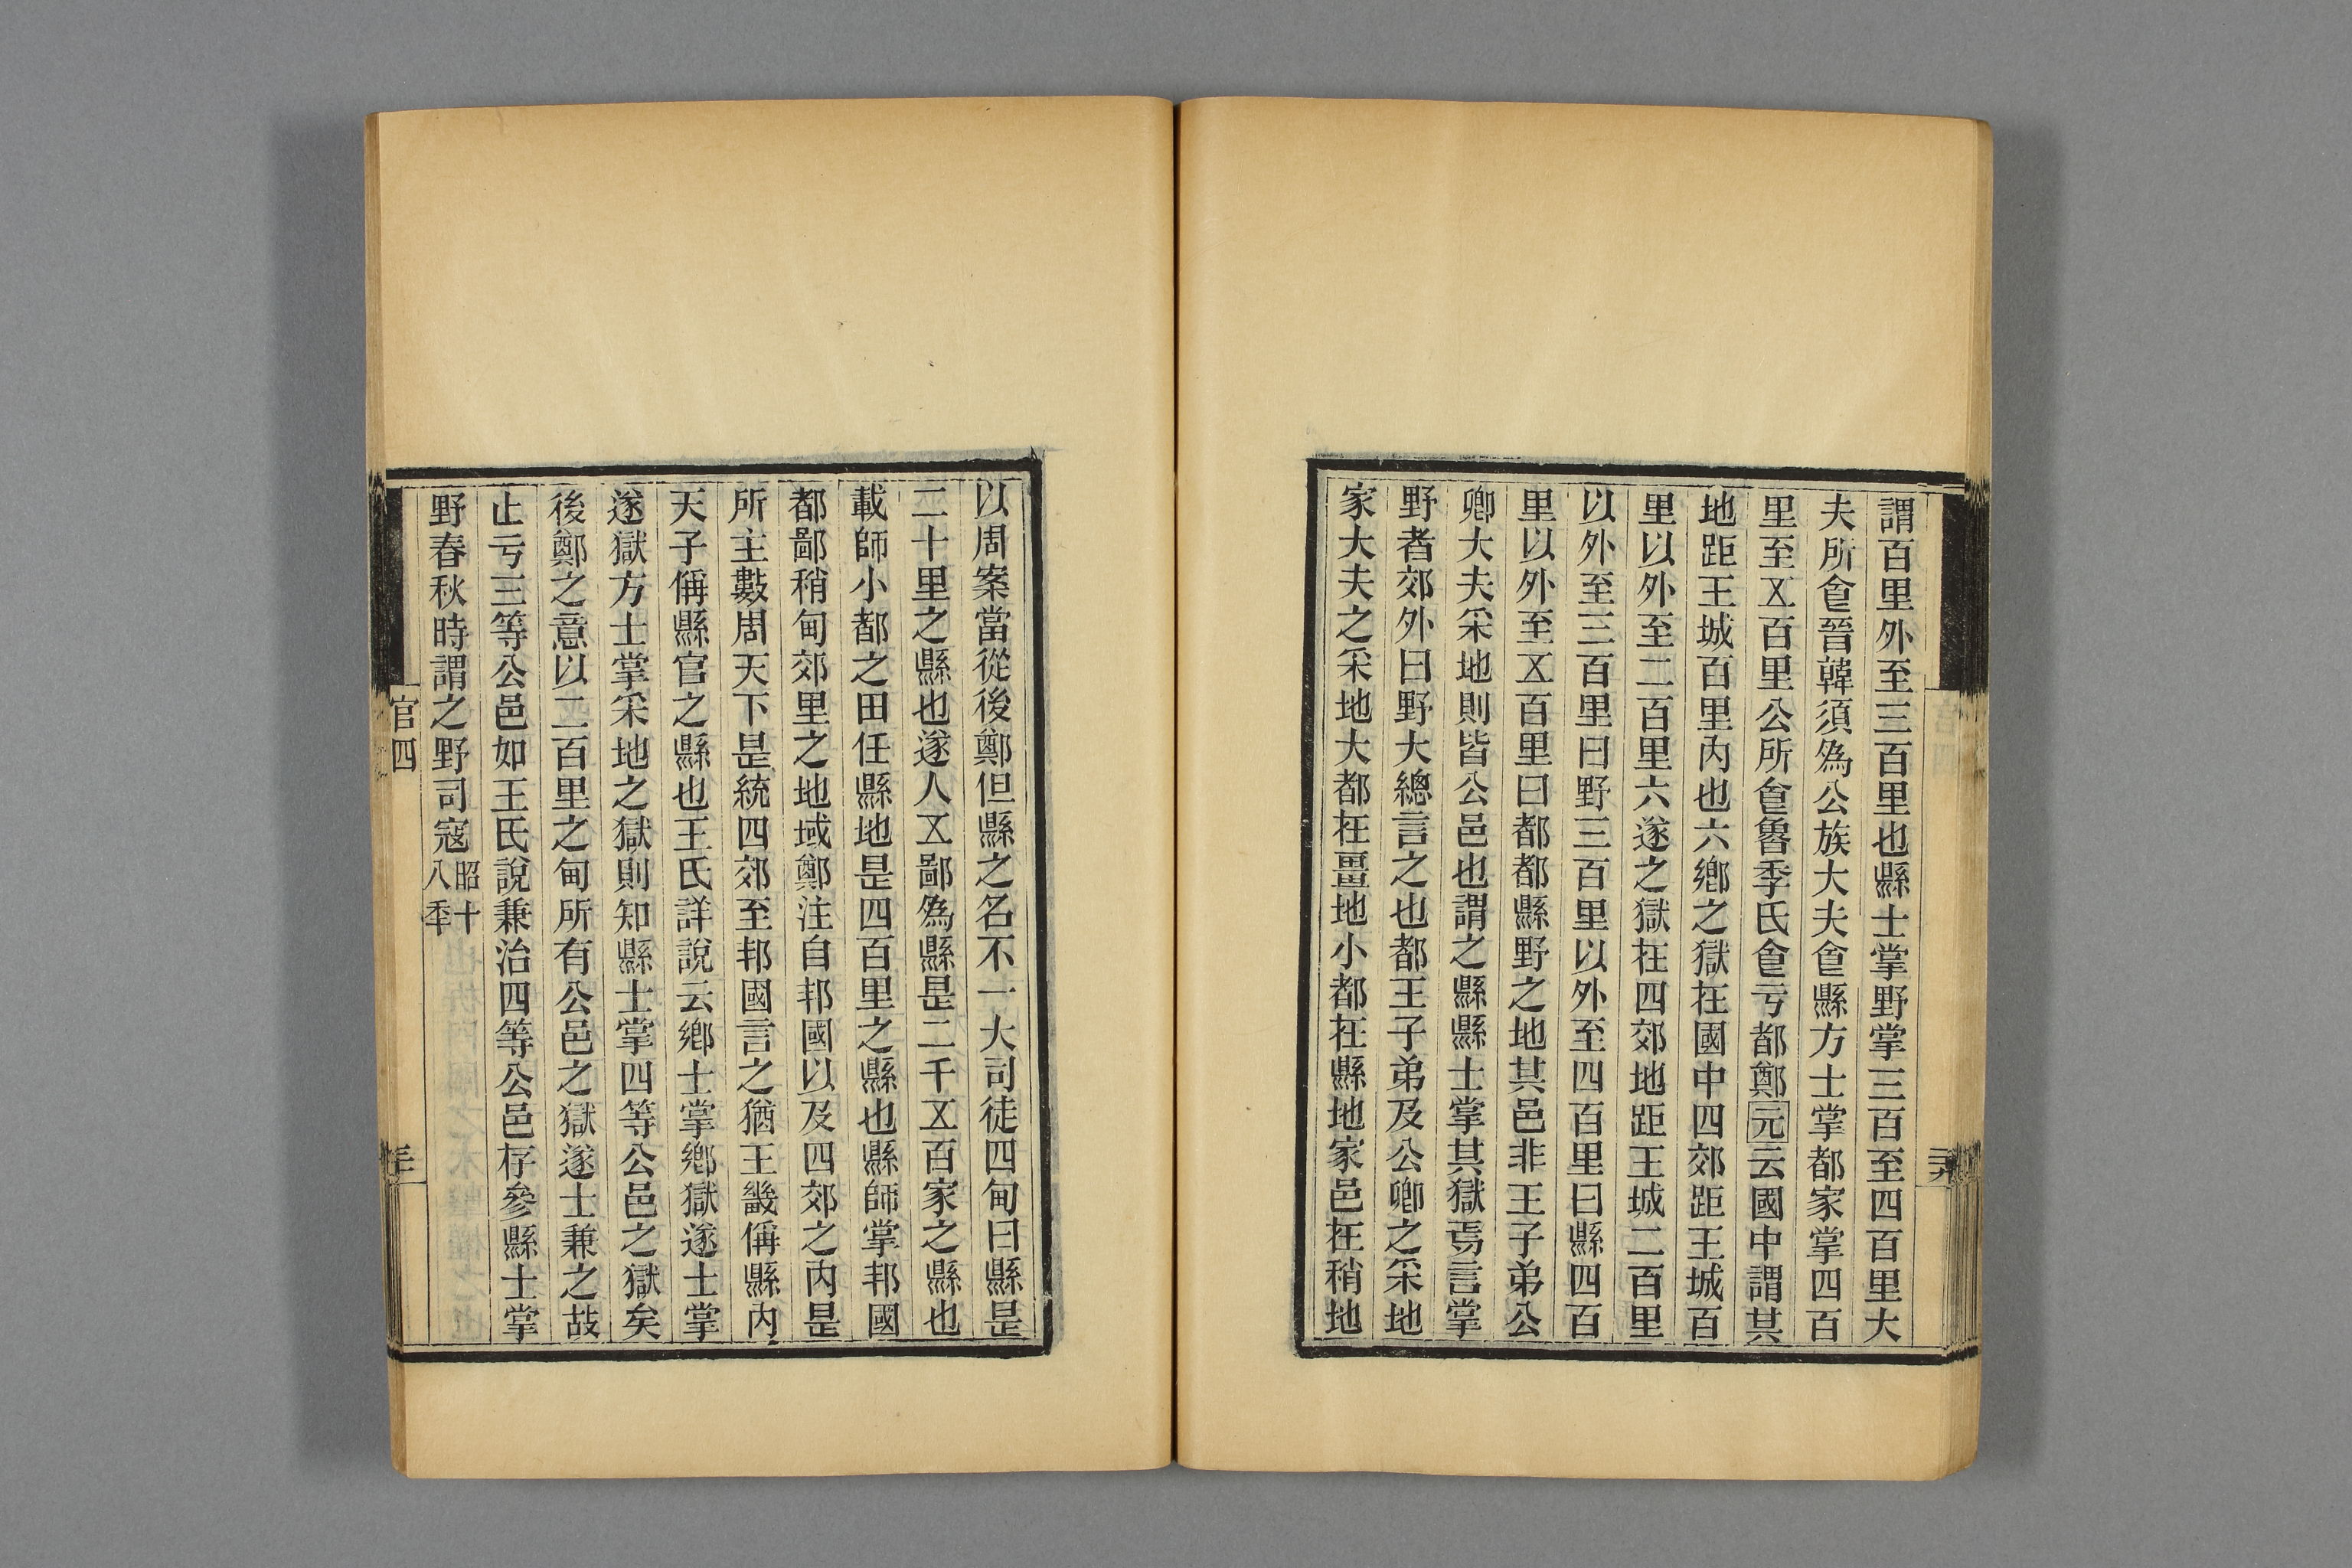 謂百里外至三百里也縣士掌野掌三百至四百里大
夫所㑹晉韓須為公族大夫㑹縣方士掌都家掌四百
里至㐅百里公所㑹魯季氏㑹亏都鄭元云國中謂其
地距王城百里內也六鄉之獄在國中四郊距王城百
里以外至二百里六遂之獄在四郊地距王城二百里
以外至三百里曰野三百里以外至四百里曰縣四百
里以外至㐅百里曰都都縣野之地其邑非王子弟公
卿大夫采地則皆公邑也謂之縣縣士掌其獄焉言掌
野者郊外曰野大總言之也都王子弟及公卿之采地
家大夫之采地大都在畺地小都在縣地家邑在稍地
以周案當從後鄭但縣之名不一大司徒四甸曰縣是
二十里之縣也遂人㐅鄙為縣是二千㐅百家之縣也
載師小都之田任縣地是四百里之縣也縣師掌邦國
都鄙稍甸郊里之地域鄭注自邦國以及四郊之內是
所主數周天下是統四郊至邦國言之猶王畿偁縣內
天子偁縣官之縣也王氏詳說云鄉士掌鄉獄遂士掌
遂獄方士掌采地之獄則知縣士掌四等公邑之獄矣
後鄭之意以二百里之甸所有公邑之獄遂士兼之故
止亏三等公邑如王氏說兼治四等公邑存參縣士掌
野春秋時謂之野司寇昭十八秊
官四